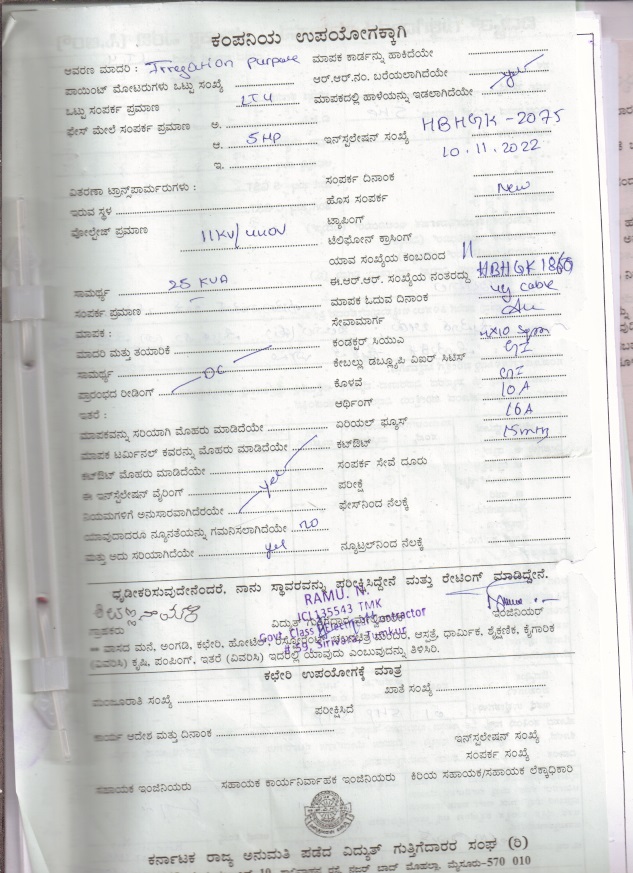 ಕಂಪನಿಯ ಉಪಯೋಗಕ್ಕಾಗಿ
ಆವರಣ ಮಾದರಿ : Irregation purpose ಮಾಪಕ ಕಾರ್ಡನ್ನು ಹಾಕಿದೆಯೇ
ಪಾಯಿಂಟ್ ಮೋಟರುಗಳು ಒಟ್ಟು ಸಂಖ್ಯೆ ಆರ್.ಆರ್.ನಂ. ಬರೆಯಲಾಗಿದೆಯೇ yes
ಒಟ್ಟು ಸಂಪರ್ಕ ಪ್ರಮಾಣ LT4 ಮಾಪಕದಲ್ಲಿ ಹಾಳೆಯನ್ನು ಇಡಲಾಗಿದೆಯೇ
ಫೇಸ್ ಮೇಲೆ ಸಂಪರ್ಕ ಪ್ರಮಾಣ ಅ.
ಆ. 5HP ಇನ್‌ಸ್ಟಲೇಷನ್ ಸಂಖ್ಯೆ HBHGK-2075
ಇ. 10.11.2022
ವಿತರಣಾ ಟ್ರಾನ್ಸ್‌ಪಾರ್ಮರುಗಳು : ಸಂಪರ್ಕ ದಿನಾಂಕ
ಇರುವ ಸ್ಥಳ ಹೊಸ ಸಂಪರ್ಕ New
ವೋಲ್ಟೇಜ್ ಪ್ರಮಾಣ 11KV/440V ಟ್ಯಾಪಿಂಗ್
ಟೆಲಿಫೋನ್ ಕ್ರಾಸಿಂಗ್
ಯಾವ ಸಂಖ್ಯೆಯ ಕಂಬದಿಂದ 11
ಸಾಮರ್ಥ್ಯ 25 KVA ಈ.ಆರ್.ಆರ್. ಸಂಖ್ಯೆಯ ನಂತರದ್ದು HBHGK1869
ಸಂಪರ್ಕ ಪ್ರಮಾಣ ಮಾಪಕ ಓದುವ ದಿನಾಂಕ ug cable
ಮಾಪಕ : ಸೇವಾಮಾರ್ಗ
ಮಾದರಿ ಮತ್ತು ತಯಾರಿಕೆ ಕಂಡಕ್ಟರ್ ಸಿಯುಎ 4x10 sqmm
ಸಾಮರ್ಥ್ಯ DC ಕೇಬಲ್ಲು ಡಬ್ಲ್ಯೂಪಿ ವಿಐರ್ ಸಿಟಿಸ್ GI
ಪ್ರಾರಂಭದ ರೀಡಿಂಗ್ ಕೊಳವೆ GI
ಇತರೆ : ಅರ್ಥಿಂಗ್ 10A
ಮಾಪಕವನ್ನು ಸರಿಯಾಗಿ ಮೊಹರು ಮಾಡಿದೆಯೇ ಏರಿಯಲ್ ಫ್ಯೂಸ್ 16A
ಮಾಪಕ ಟರ್ಮಿನಲ್ ಕವರನ್ನು ಮೊಹರು ಮಾಡಿದೆಯೇ ಕಟ್‌ಔಟ್ 15mm
ಕಟ್‌ಔಟ್ ಮೊಹರು ಮಾಡಿದೆಯೇ ಸಂಪರ್ಕ ಸೇವೆ ದೂರು
ಈ ಇನ್‌ಸ್ಟಲೇಷನ್ ವೈರಿಂಗ್ yes ಪರೀಕ್ಷೆ
ನಿಯಮಗಳಿಗೆ ಅನುಸಾರವಾಗಿದೆರಯೇ ಫೇಸ್‌ನಿಂದ ನೆಲಕ್ಕೆ
ಯಾವುದಾದರೂ ನ್ಯೂನತೆಯನ್ನು ಗಮನಿಸಲಾಗಿದೆಯೇ no
ಮತ್ತು ಅದು ಸರಿಯಾಗಿದೆಯೇ yes ನ್ಯೂಟ್ರಲ್‌ನಿಂದ ನೆಲಕ್ಕೆ
ಧೃಡೀಕರಿಸುವುದೇನೆಂದರೆ, ನಾನು ಸ್ಥಾವರವನ್ನು ಪರೀಕ್ಷಿಸಿದ್ದೇನೆ ಮತ್ತು ರೇಟಿಂಗ್ ಮಾಡಿದ್ದೇನೆ.
RAMU. N.
ICL135543 TMK
Govt. Class Electrical Contractor
# 59, Sirivara, Tumkur
ಗ್ರಾಹಕರು ವಿದ್ಯುತ್ ಇಂಜಿನಿಯರ್
ವಾಸದ ಮನೆ, ಅಂಗಡಿ, ಕಛೇರಿ, ಹೋಟೆಲ್, ಮಂದಿರ, ಆಸ್ಪತ್ರೆ, ಧಾರ್ಮಿಕ, ಶೈಕ್ಷಣಿಕ, ಕೈಗಾರಿಕ
(ವಿವರಿಸಿ) ಕೃಷಿ, ಪಂಪಿಂಗ್, ಇತರೆ (ವಿವರಿಸಿ) ಇದರಲ್ಲಿ ಯಾವುದು ಎಂಬುವುದನ್ನು ತಿಳಿಸಿರಿ.
ಕಛೇರಿ ಉಪಯೋಗಕ್ಕೆ ಮಾತ್ರ
ಮಂಜೂರಾತಿ ಸಂಖ್ಯೆ ಖಾತೆ ಸಂಖ್ಯೆ
ಪರೀಕ್ಷಿಸಿದೆ
ಕಾರ್ಯ ಆದೇಶ ಮತ್ತು ದಿನಾಂಕ ಇನ್‌ಸ್ಟಲೇಷನ್ ಸಂಖ್ಯೆ
ಸಂಪರ್ಕ ಸಂಖ್ಯೆ
ಸಹಾಯಕ ಇಂಜಿನಿಯರು ಸಹಾಯಕ ಕಾರ್ಯನಿರ್ವಾಹಕ ಇಂಜಿನಿಯರು ಕಿರಿಯ ಸಹಾಯಕ/ಸಹಾಯಕ ಲೆಕ್ಕಾಧಿಕಾರಿ
ಕರ್ನಾಟಕ ರಾಜ್ಯ ಅನುಮತಿ ಪಡೆದ ವಿದ್ಯುತ್ ಗುತ್ತಿಗೆದಾರರ ಸಂಘ (ರಿ)
ಮೈಸೂರು-570 010